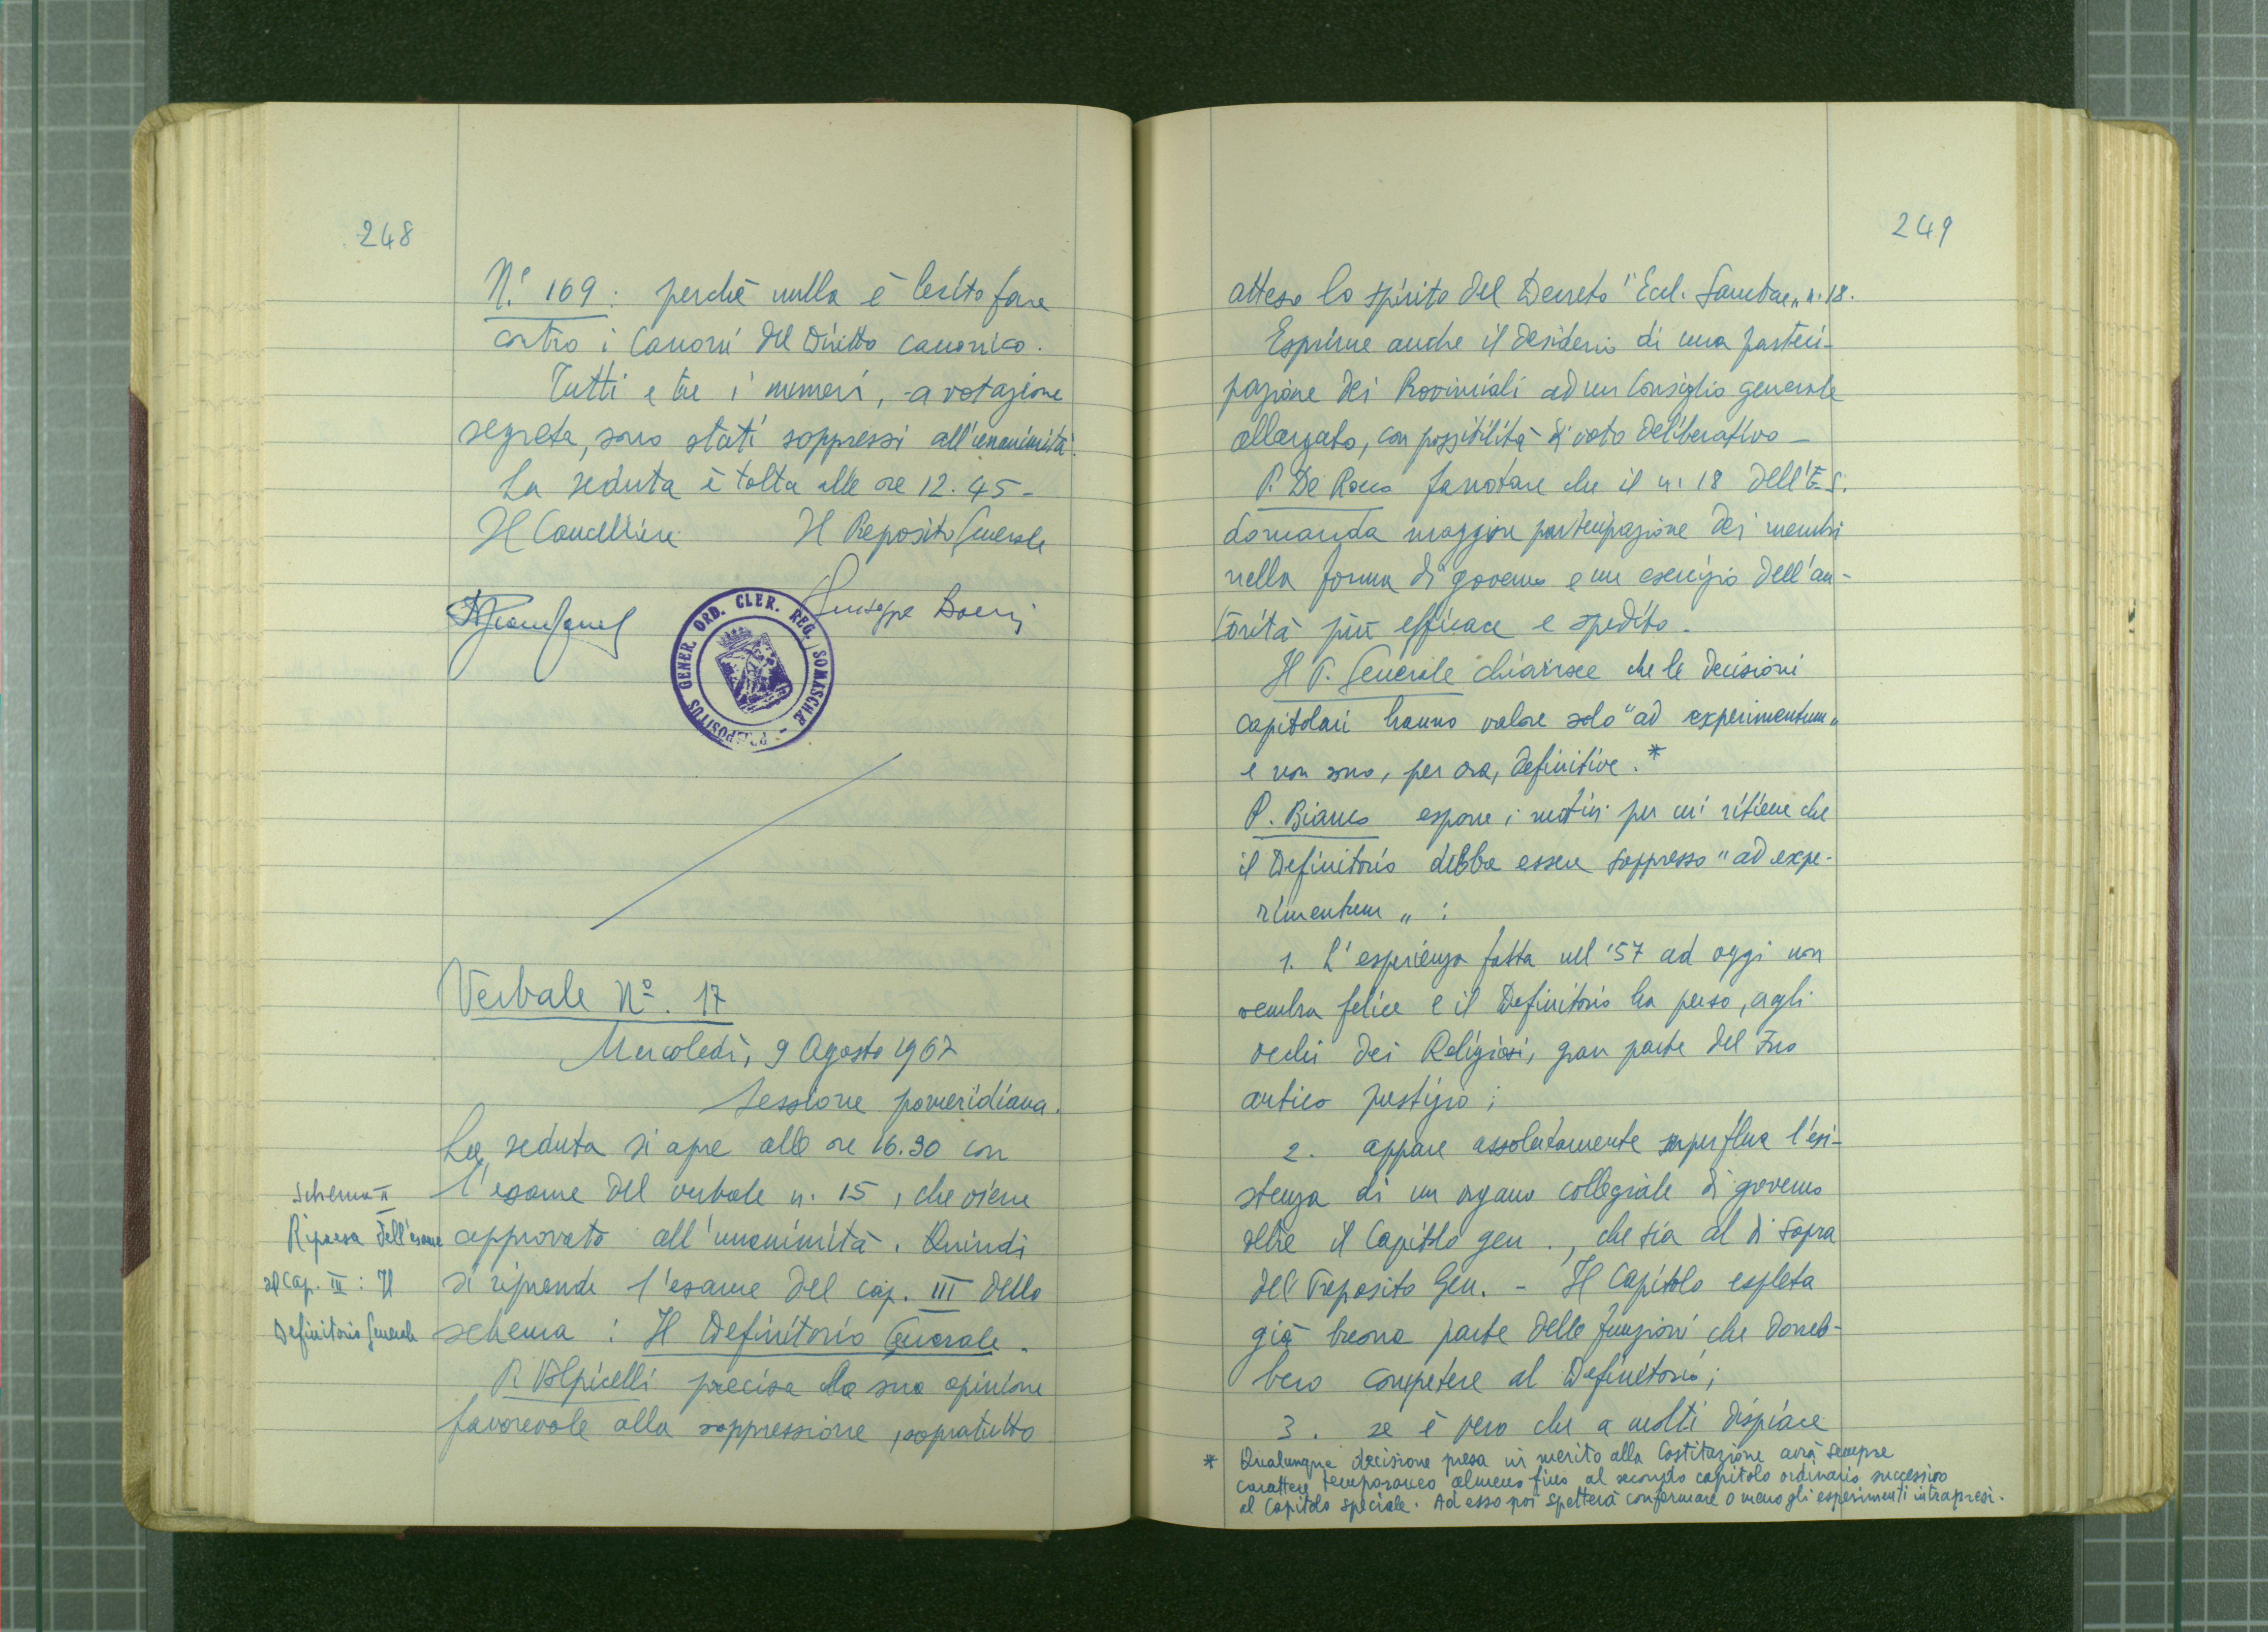 248
N.º 169: perchè nulla è lecito fare
contro i Canoni del Diritto canonico.
Tutti e tre i numeri, a votazione
segreta, sono stati soppressi all'unanimità.
La seduta è tolta alle ore 12.45-
Il Cancelliere Il Preposito Generale
Giuseppe Boeri
PREPOSITUS GENER. ORD. CLER. REG. SOMASCHÆ -
Verbale Nº. 17
Mercoledì, 9 Agosto 1967
Sessione pomeridiana.
La seduta si apre alle ore 16.30 con
l'esame del verbale n. 15, che viene
approvato all'unanimità. Quindi
si riprende l'esame del cap. III dello
schema: Il Definitorio Generale.
P. Volpicelli precisa la sua opinione
favorevole alla soppressione, sopratutto
Schema II
Ripresa dell'esame
del Cap. III: Il
Definitorio Generale
249
atteso lo spirito del Decreto "Eccl. Sanctae" n. 18.
Esprime anche il desiderio di una parteci-
pazione dei Provinciali ad un Consiglio generale
allargato, con possibilità di voto deliberativo -
P. De Rocco fa notare che il n. 18 dell'E.S.
domanda maggior partecipazione dei membri
nella forma di governo e un esercizio dell'au-
torità più efficace e spedito.
Il P. Generale chiarisce che le decisioni
capitolari hanno valore solo "ad experimentum"
e non sono, per ora, definitive.*
P. Bianco espone i motivi per cui ritiene che
il Definitorio debba essere soppresso "ad expe-
rimentum":
1. L'esperienza fatta nel '57 ad oggi non
sembra felice e il Definitorio ha perso, agli
occhi dei Religiosi, gran parte del suo
antico prestigio;
2. appare assolutamente superflua l'esi-
stenza di un organo collegiale di governo
oltre il Capitolo gen., che sia al di sopra
del Preposito Gen. - Il Capitolo espleta
già buona parte delle funzioni che dovreb-
bero competere al Definitorio;
3. se è vero che a molti dispiace
* Qualunque decisione presa in merito alla Costituzione avrà sempre
carattere temporaneo almeno fino al secondo capitolo ordinario successivo
al Capitolo speciale. Ad esso poi spetterà confermare o meno gli esperimenti intrapresi.